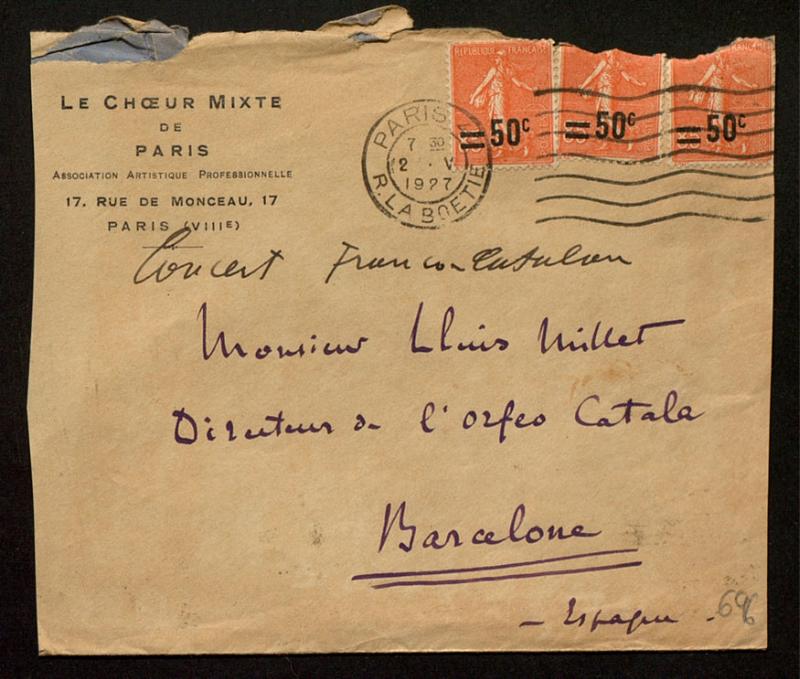 LE CHŒUR MIXTE
DE
PARIS
ASSOCIATION ARTISTIQUE PROFESSIONNELLE
17, RUE DE MONCEAU, 17
PARIS (VIIIE)
REPUBLIQUE FRANÇAISE
50c
50c
FRANÇAISE
50c
PARIS
7 30
2 · V
1927
R. LA BOETIE
Concert Franco-Catalan
Monsieur Lluis Millet
Directeur de l'Orfeo Catala
Barcelone
- Espagne -
696